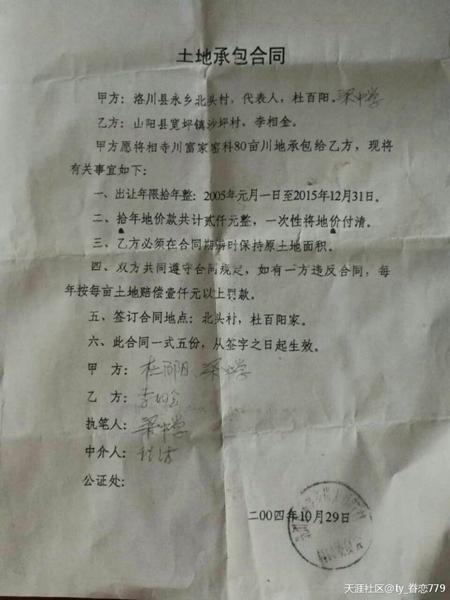 土地承包合同
甲方：洛川县永乡北头村，代表人，杜百阳。梁中学
乙方：山阳县宽坪镇沙坪村，李相金。
甲方愿将相寺川富家窑科80亩川地承包给乙方，现将
有关事宜如下：
一、出让年限拾年整：2005年元月一日至2015年12月31日。
二、拾年地价款共计贰仟元整，一次性将地价付清。
三、乙方必须在合同期满时保持原土地面积。
四、双方共同遵守合同规定，如有一方违反合同，每
年按每亩土地赔偿壹仟元以上罚款。
五、签订合同地点：北头村，杜百阳家。
六、此合同一式五份，从签字之日起生效。
甲 方：杜百阳 梁中学
乙 方：李相金
执笔人：梁中学
中介人：
公证处：
二00四年10月29日
天涯社区@ty_眷恋779